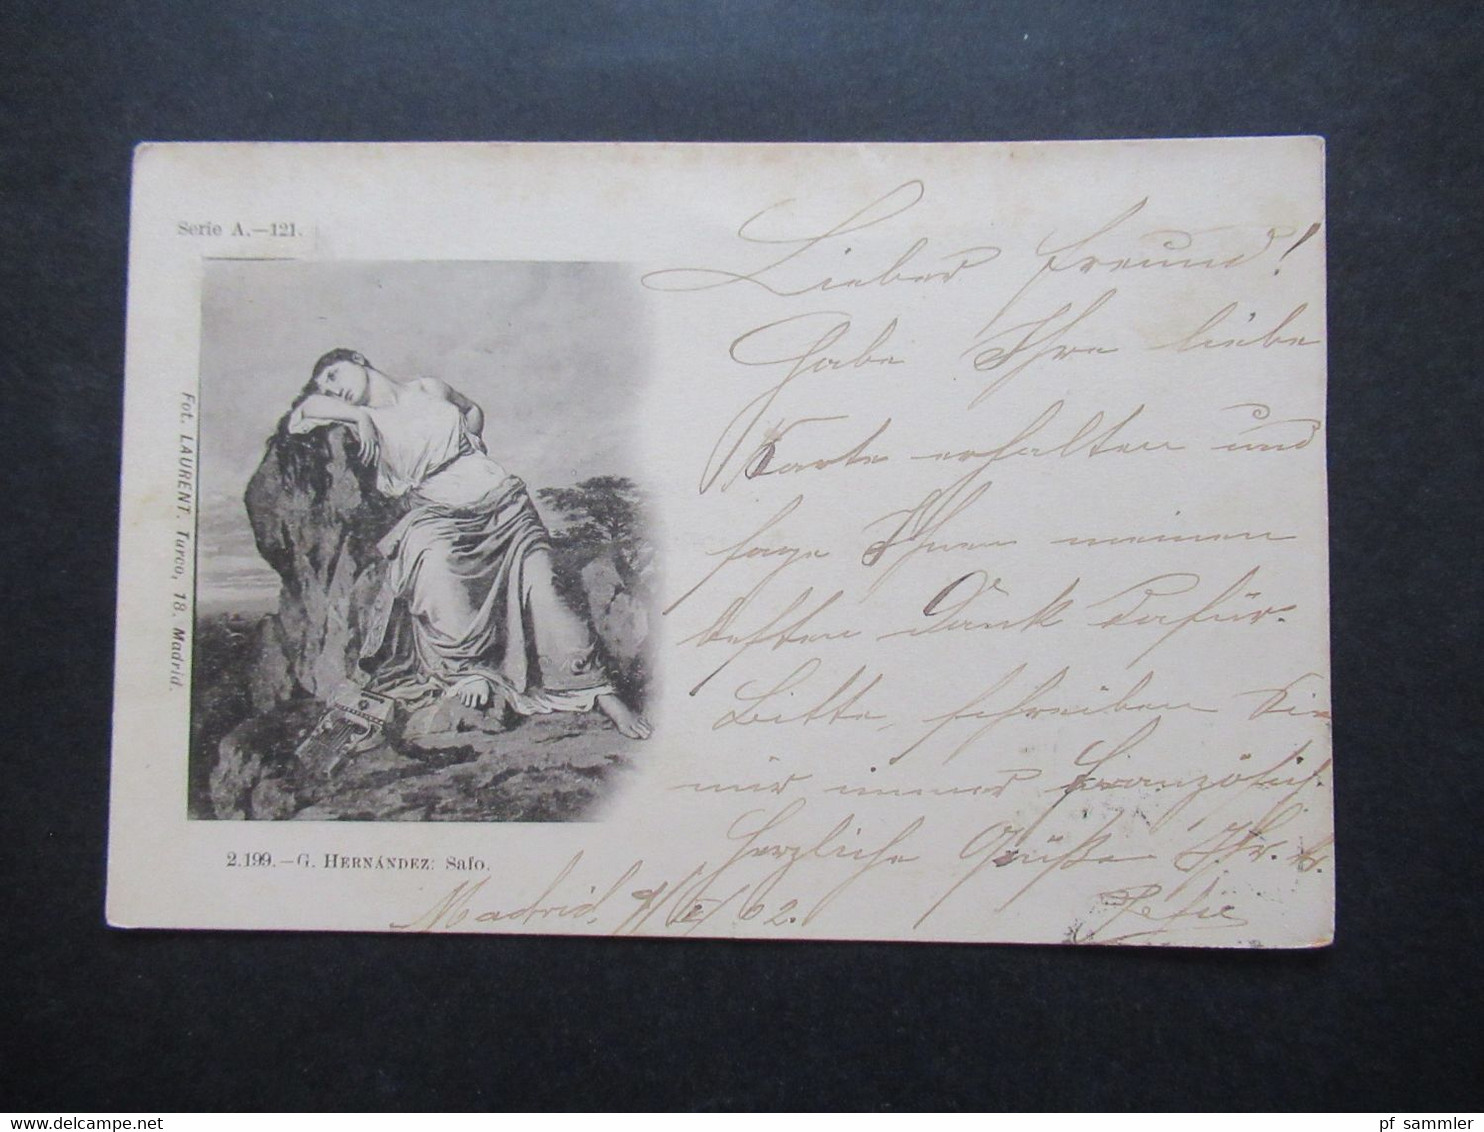 Serie A.—121.
Fot. LAURENT. Turco, 18. Madrid.
2.199.—G. HERNÁNDEZ: Safo.
Lieber Freund!
Habe Ihre liebe
Karte erhalten und
sage Ihnen meinen
besten Dank dafür.
Bitte, schreiben Sie
mir immer französisch.
Herzliche Grüße Ihr
Madrid, 02.
delcampe.net
pf sammler